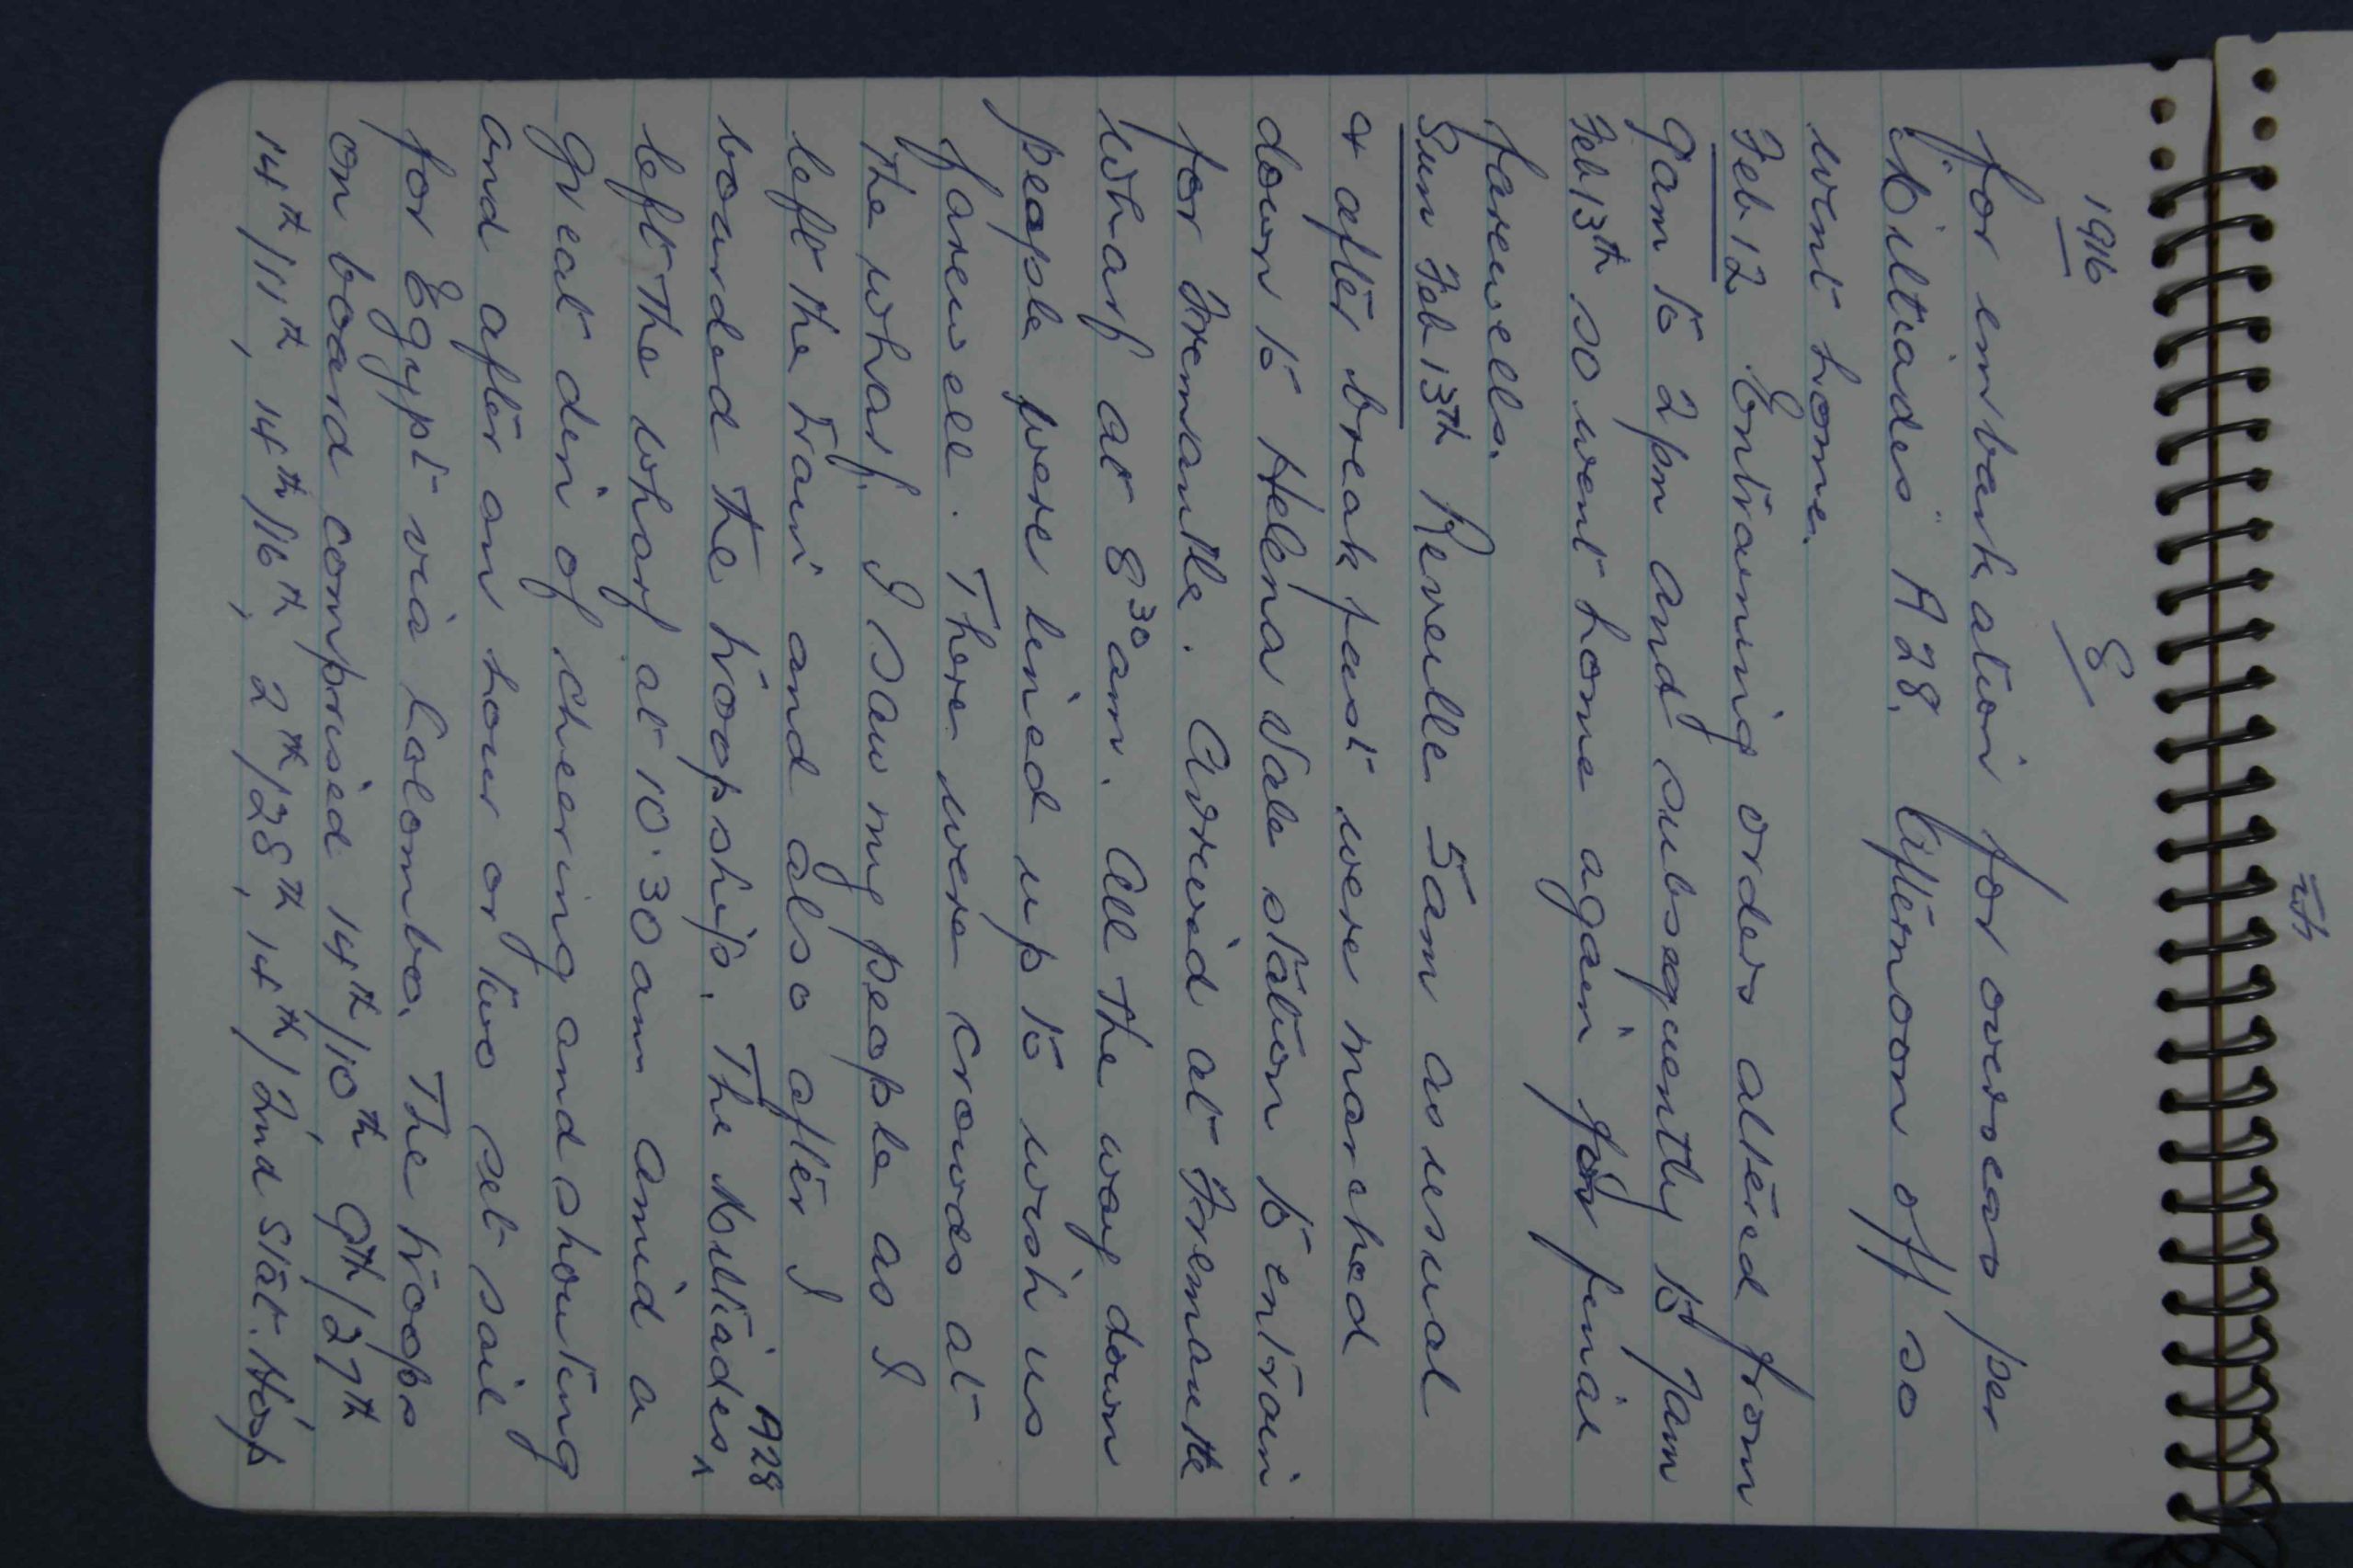 1916
8
for embarkation for overseas per
"Miltiades" A28. Afternoon off so
went home.
Feb 12 Entraining orders altered from
9am to 2pm and subsequently to 7am
Feb 13th so went home again for final
farewells.
Sun Feb 13th Reveille 5am as usual
& after breakfast were marched
down to Helena Vale station to entrain
for Fremantle. Arrived at Fremantle
wharf at 8 30 am. All the way down
people were lined up to wish us
farewell. There were crowds at
the wharf. I saw my people as I
left the train and also after I
boarded the troopship. The Miltiades A28
left the wharf at 10.30am amid a
great din of cheering and shouting
and after an hour or two set sail
for Egypt via Colombo. The troops
on board comprised 14th/10th, 9th/27th
14th/11th, 14th/16th, 2th/28th, 14th/2nd Stat. Hosp